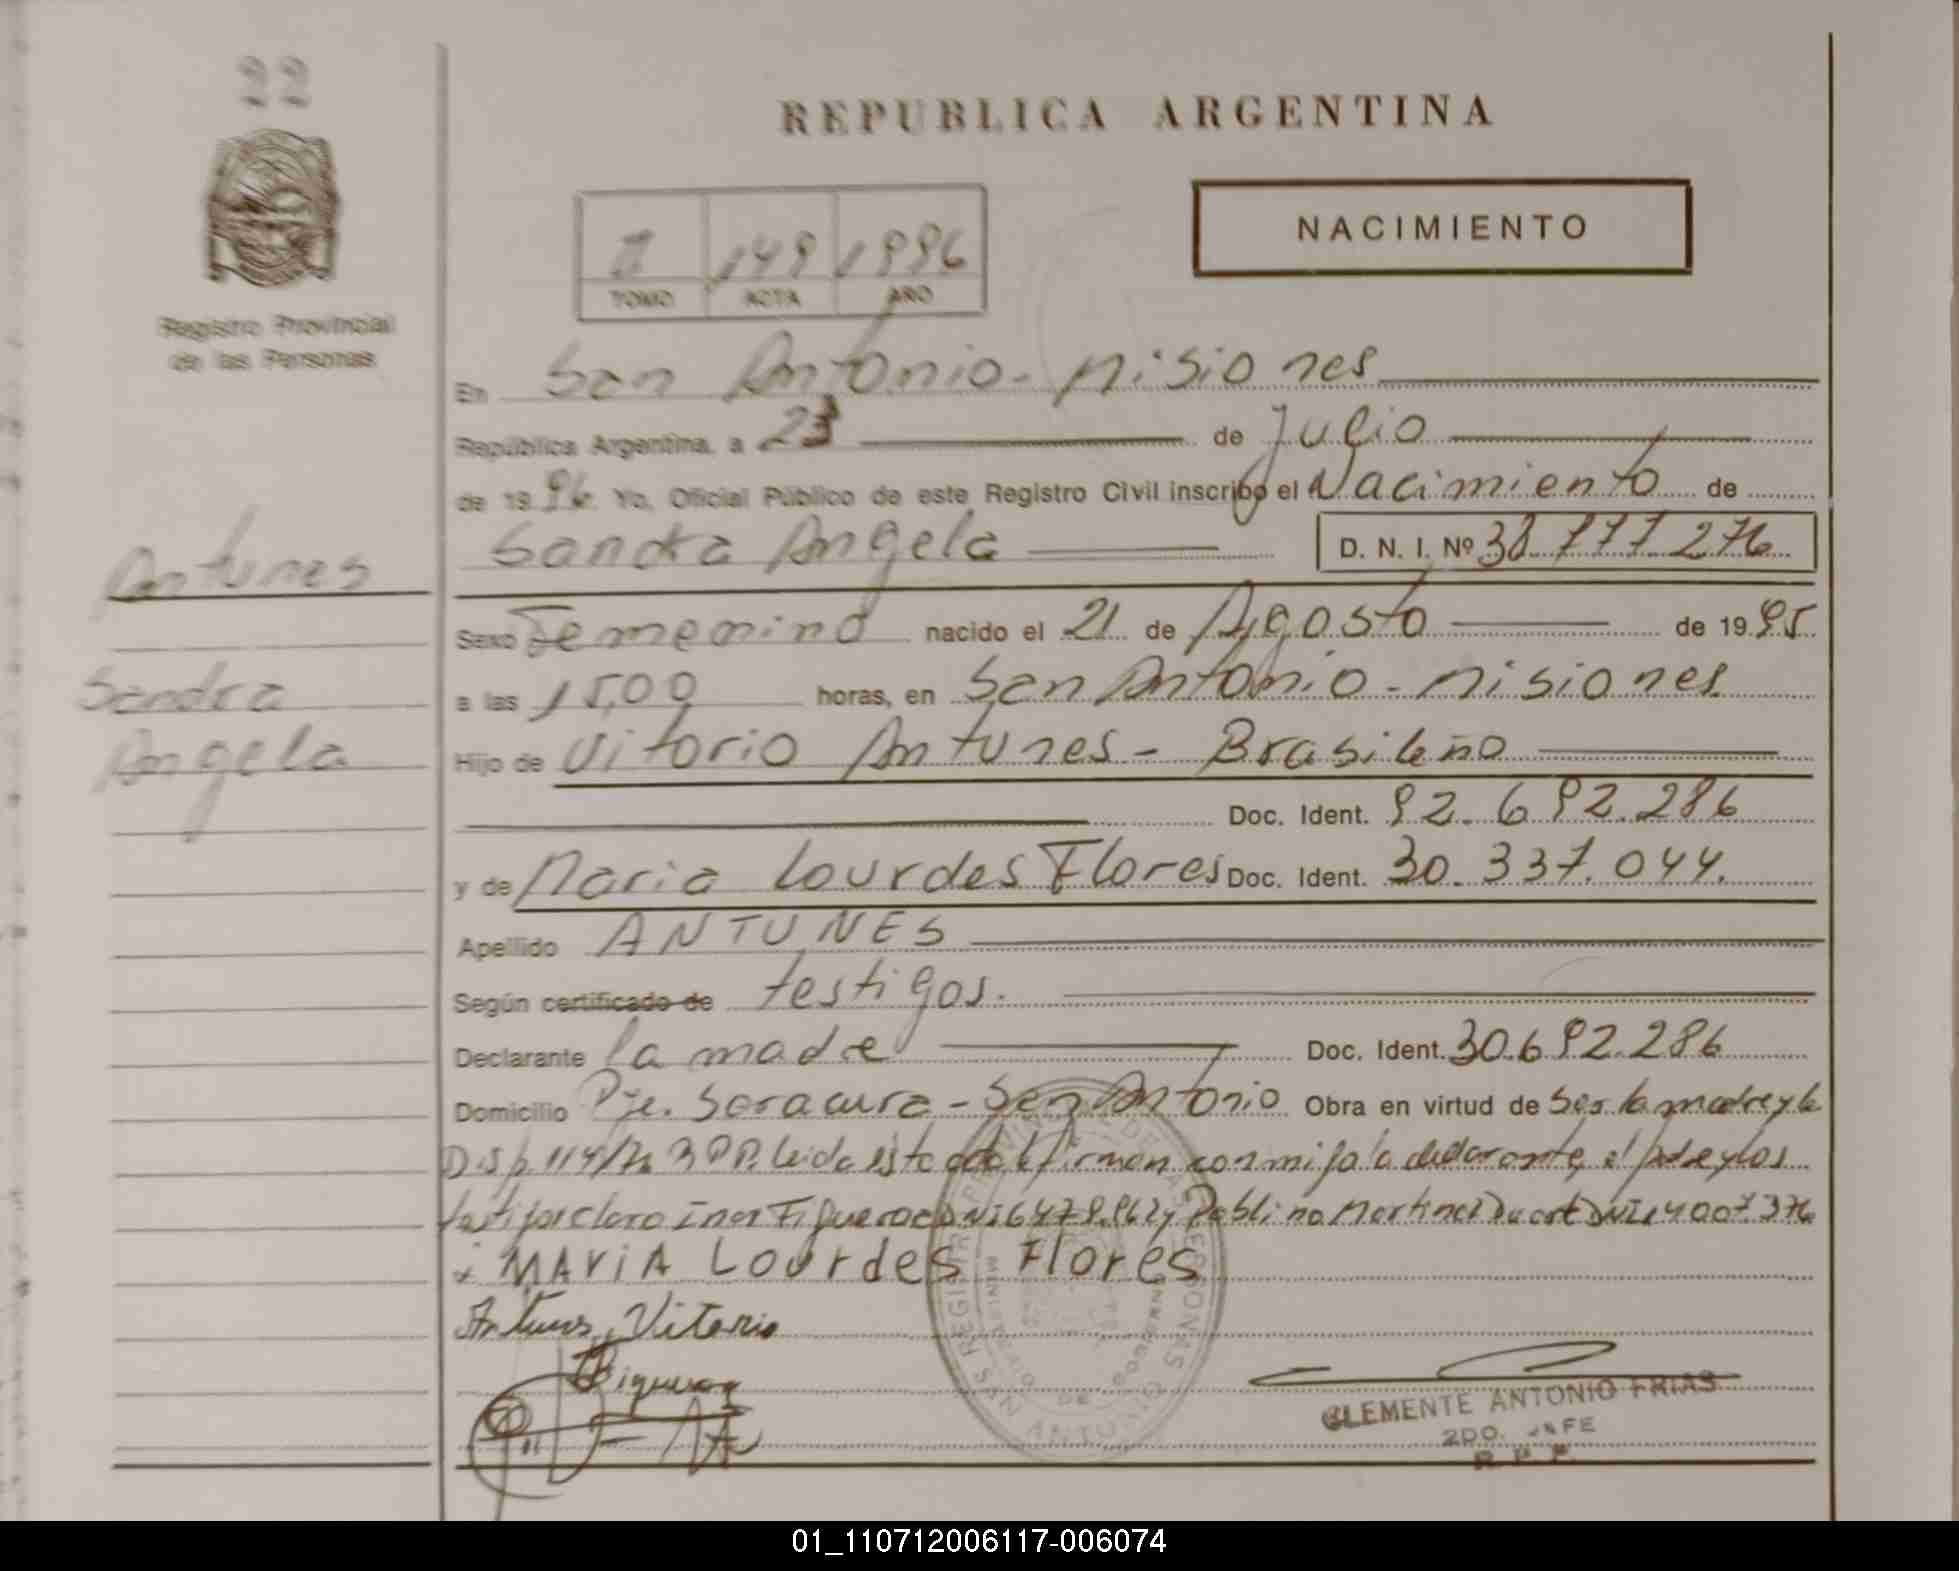 22
REPUBLICA ARGENTINA
NACIMIENTO
I 149 1996
TOMO ACTA AÑO
Registro Provincial
de las Personas
En San Antonio - Misiones
República Argentina, a 23 de Julio
de 1996. Yo, Oficial Público de este Registro Civil inscribo el Nacimiento de
Sandra Angela D. N. I. Nº 38.777.276
Antunes
Sexo Femenino nacido el 21 de Agosto de 1995
Sandra
a las 15,00 horas, en San Antonio - Misiones
Angela
Hijo de Vitorio Antunes - Brasileño
Doc. Ident. 92.692.286
y de Maria Lourdes Flores Doc. Ident. 30.337.044.
Apellido ANTUNES
Según certificado de testigos.
Declarante la madre Doc. Ident. 30.692.286
Domicilio Pje. Soracura - San Antonio Obra en virtud de ser la madre y la
Disp. 114/72 RPP. Leida esta acta firman conmigo la declarante, el padre y los
testigos Figueroa DNI y Martinez Duarte DNI
x MAriA Lourdes Flores
Antunes, Vitorio
Figueroa
REGISTRO PROVINCIAL DE LAS PERSONAS
SAN ANTONIO
CLEMENTE ANTONIO FRIAS
2DO. JEFE
R P P
01_110712006117-006074